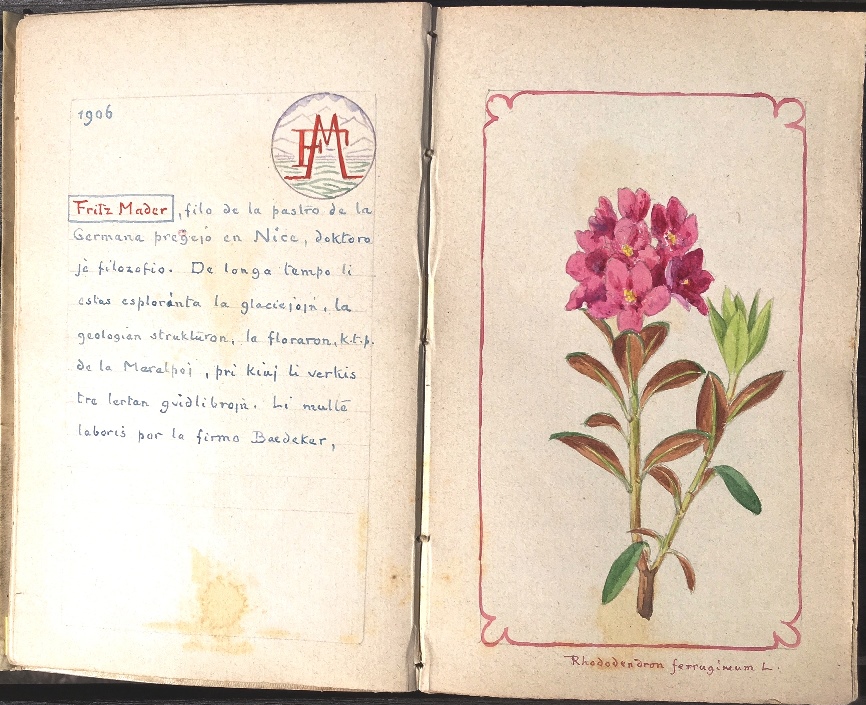 1906
FM
Fritz Mader, filo de la pastro de la
Germana preĝejo en Nice, doktoro
je filozofio. De longa tempo li
estas esploranta la glaciejojn, la
geologian strukturon, la floraron, k.t.p.
de la Maralpoj, pri kiuj li verkis
tre lertan gvidlibrojn. Li multe
laboris por la firmo Baedeker,
Rhododendron ferrugineum L.